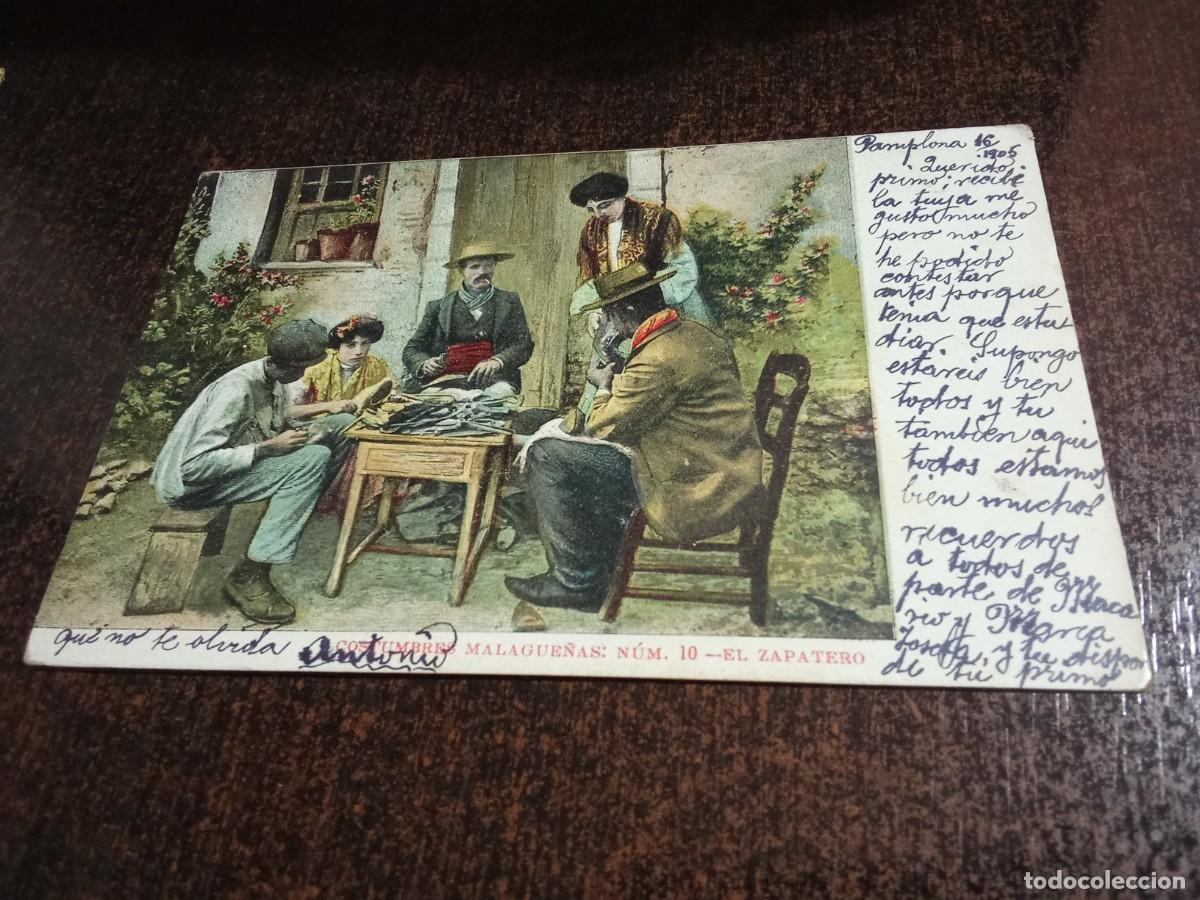 Pamplona 16
1905
Querido
primo; recibí
la tuya me
gusto mucho
pero no te
he podido
contestar
antes porque
tenia que estu
diar. Supongo
estareis bien
todos y tu
tambien aqui
todos estamos
bien muchos
recuerdos
a todos de
parte de Maca
rio y Maria
Josefa, y tu dispon
de tu primo
que no te olvida Antonio
COSTUMBRES MALAGUEÑAS: NÚM. 10 —EL ZAPATERO
todocoleccion